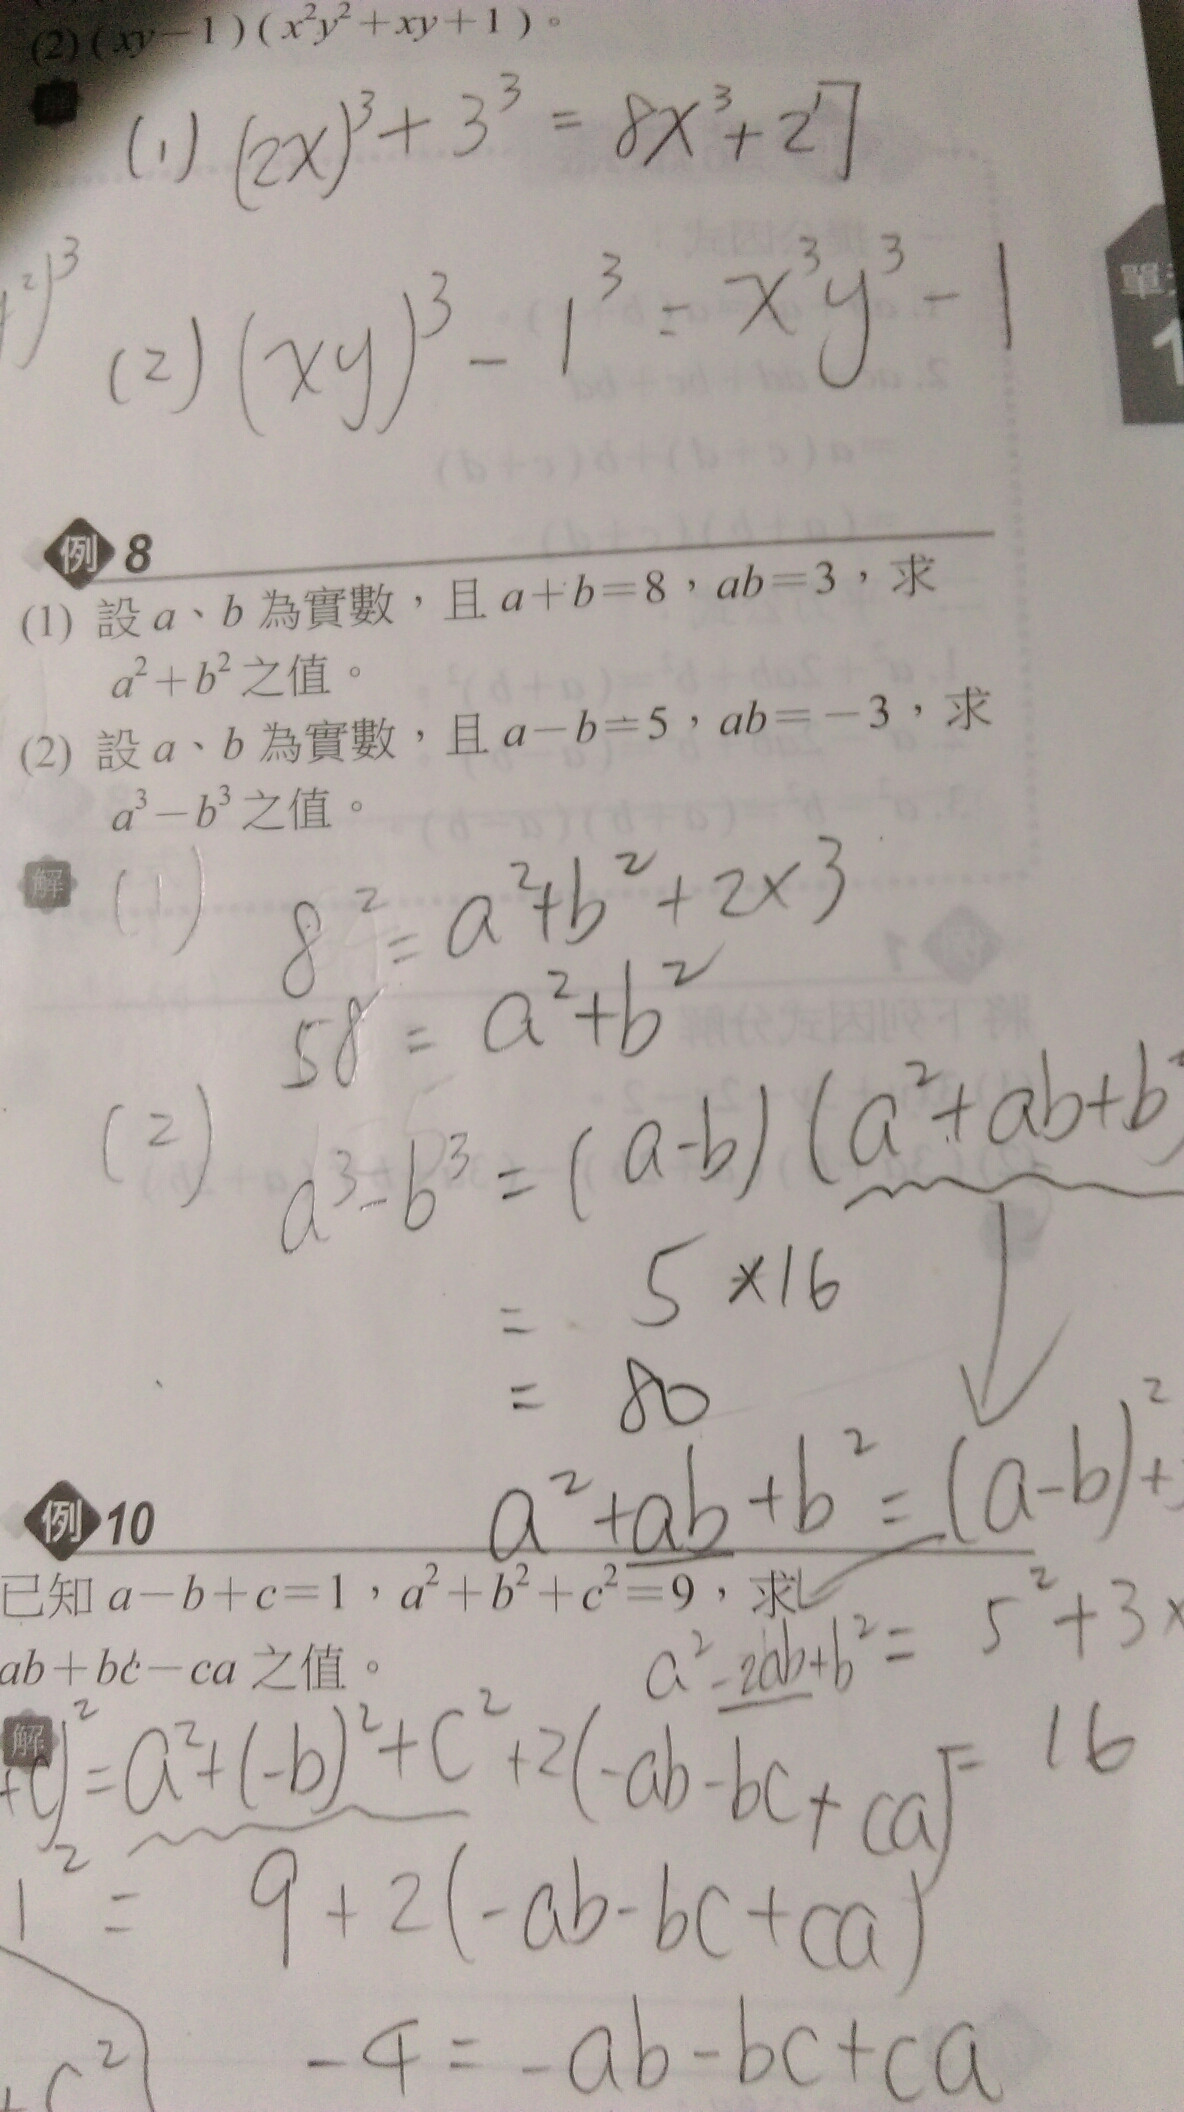 (2) (xy－1) (x²y²＋xy＋1)。
解
(1) (2x)³+3³ = 8x³+27
(2) (xy)³ - 1³ = x³y³ - 1
單
1
例 8
(1) 設 a、b 為實數，且 a＋b＝8，ab＝3，求
a²＋b² 之值。
(2) 設 a、b 為實數，且 a－b＝5，ab＝－3，求
a³－b³ 之值。
解
(1) 8² = a²+b²+2×3
58 = a²+b²
(2) a³-b³ = (a-b) (a²+ab+b²
= 5 ×16
= 80
a²+ab+b² = (a-b)²+
例 10
已知 a－b＋c＝1，a²＋b²＋c²＝9，求
ab＋bc－ca 之值。
a²-2ab+b² = 5²+3×
= 16
解
+c)² = a²+(-b)²+c²+2(-ab-bc+ca)
1² = 9+2(-ab-bc+ca)
-4 = -ab-bc+ca
+c²)